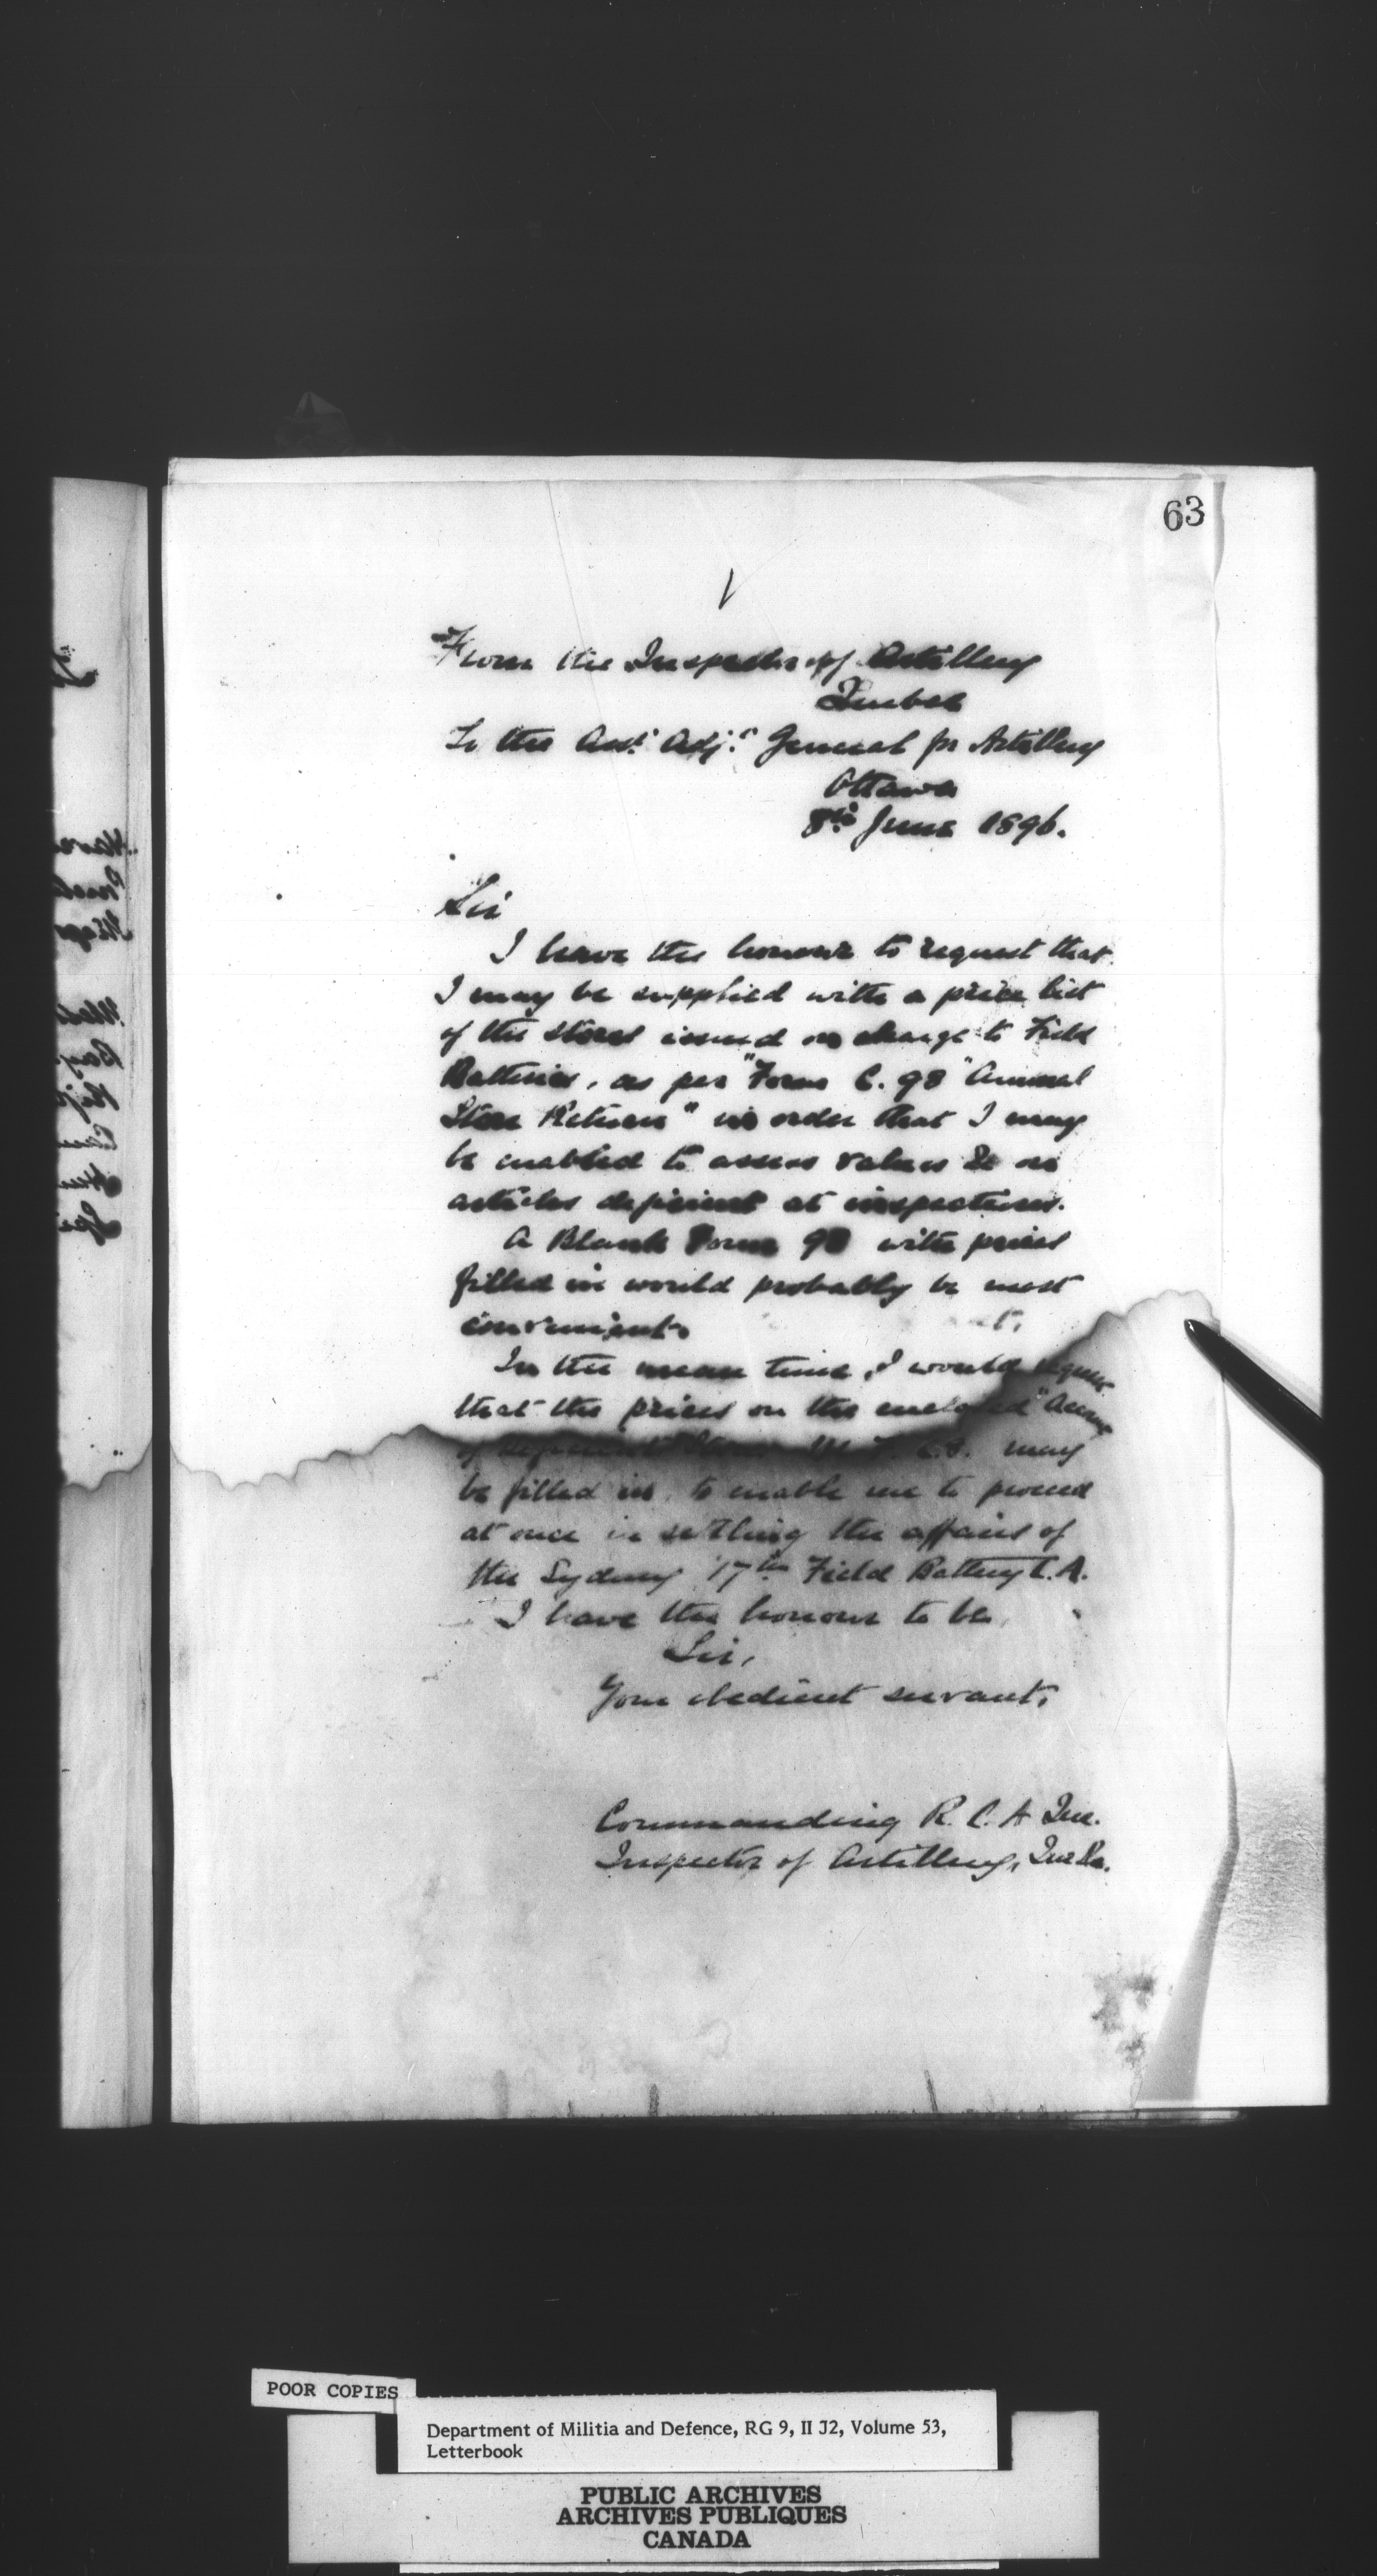 63
From the Inspector of Artillery
Quebec
To the Asst. Adjt. General for Artillery
Ottawa
8th June 1896.
Sir
I have the honour to request that
I may be supplied with a price list
of the stores issued on charge to Field
Batteries, as per "Form C. 98 "Annual
Store Return" in order that I may
be enabled to assess values &c on
articles deficient at inspections.
A Blank Form 98 with prices
filled in would probably be most
convenient.
In the mean time, I would request
that the prices on the enclosed
of Deficient may
be filled in to enable me to proceed
at once in settling the affairs of
the Sydney 17th Field Battery C.A.
I have the honour to be,
Sir,
Your obedient servant,
Commanding R.C.A Que.
Inspector of Artillery,
POOR COPIES
Department of Militia and Defence, RG 9, II J2, Volume 53,
Letterbook
PUBLIC ARCHIVES
ARCHIVES PUBLIQUES
CANADA